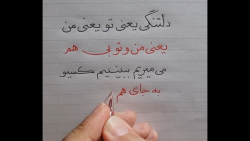 دلتنگی یعنی تو یعنی من
یعنی من و تو بی هم
می میریم ببینیم کیو
به جای هم